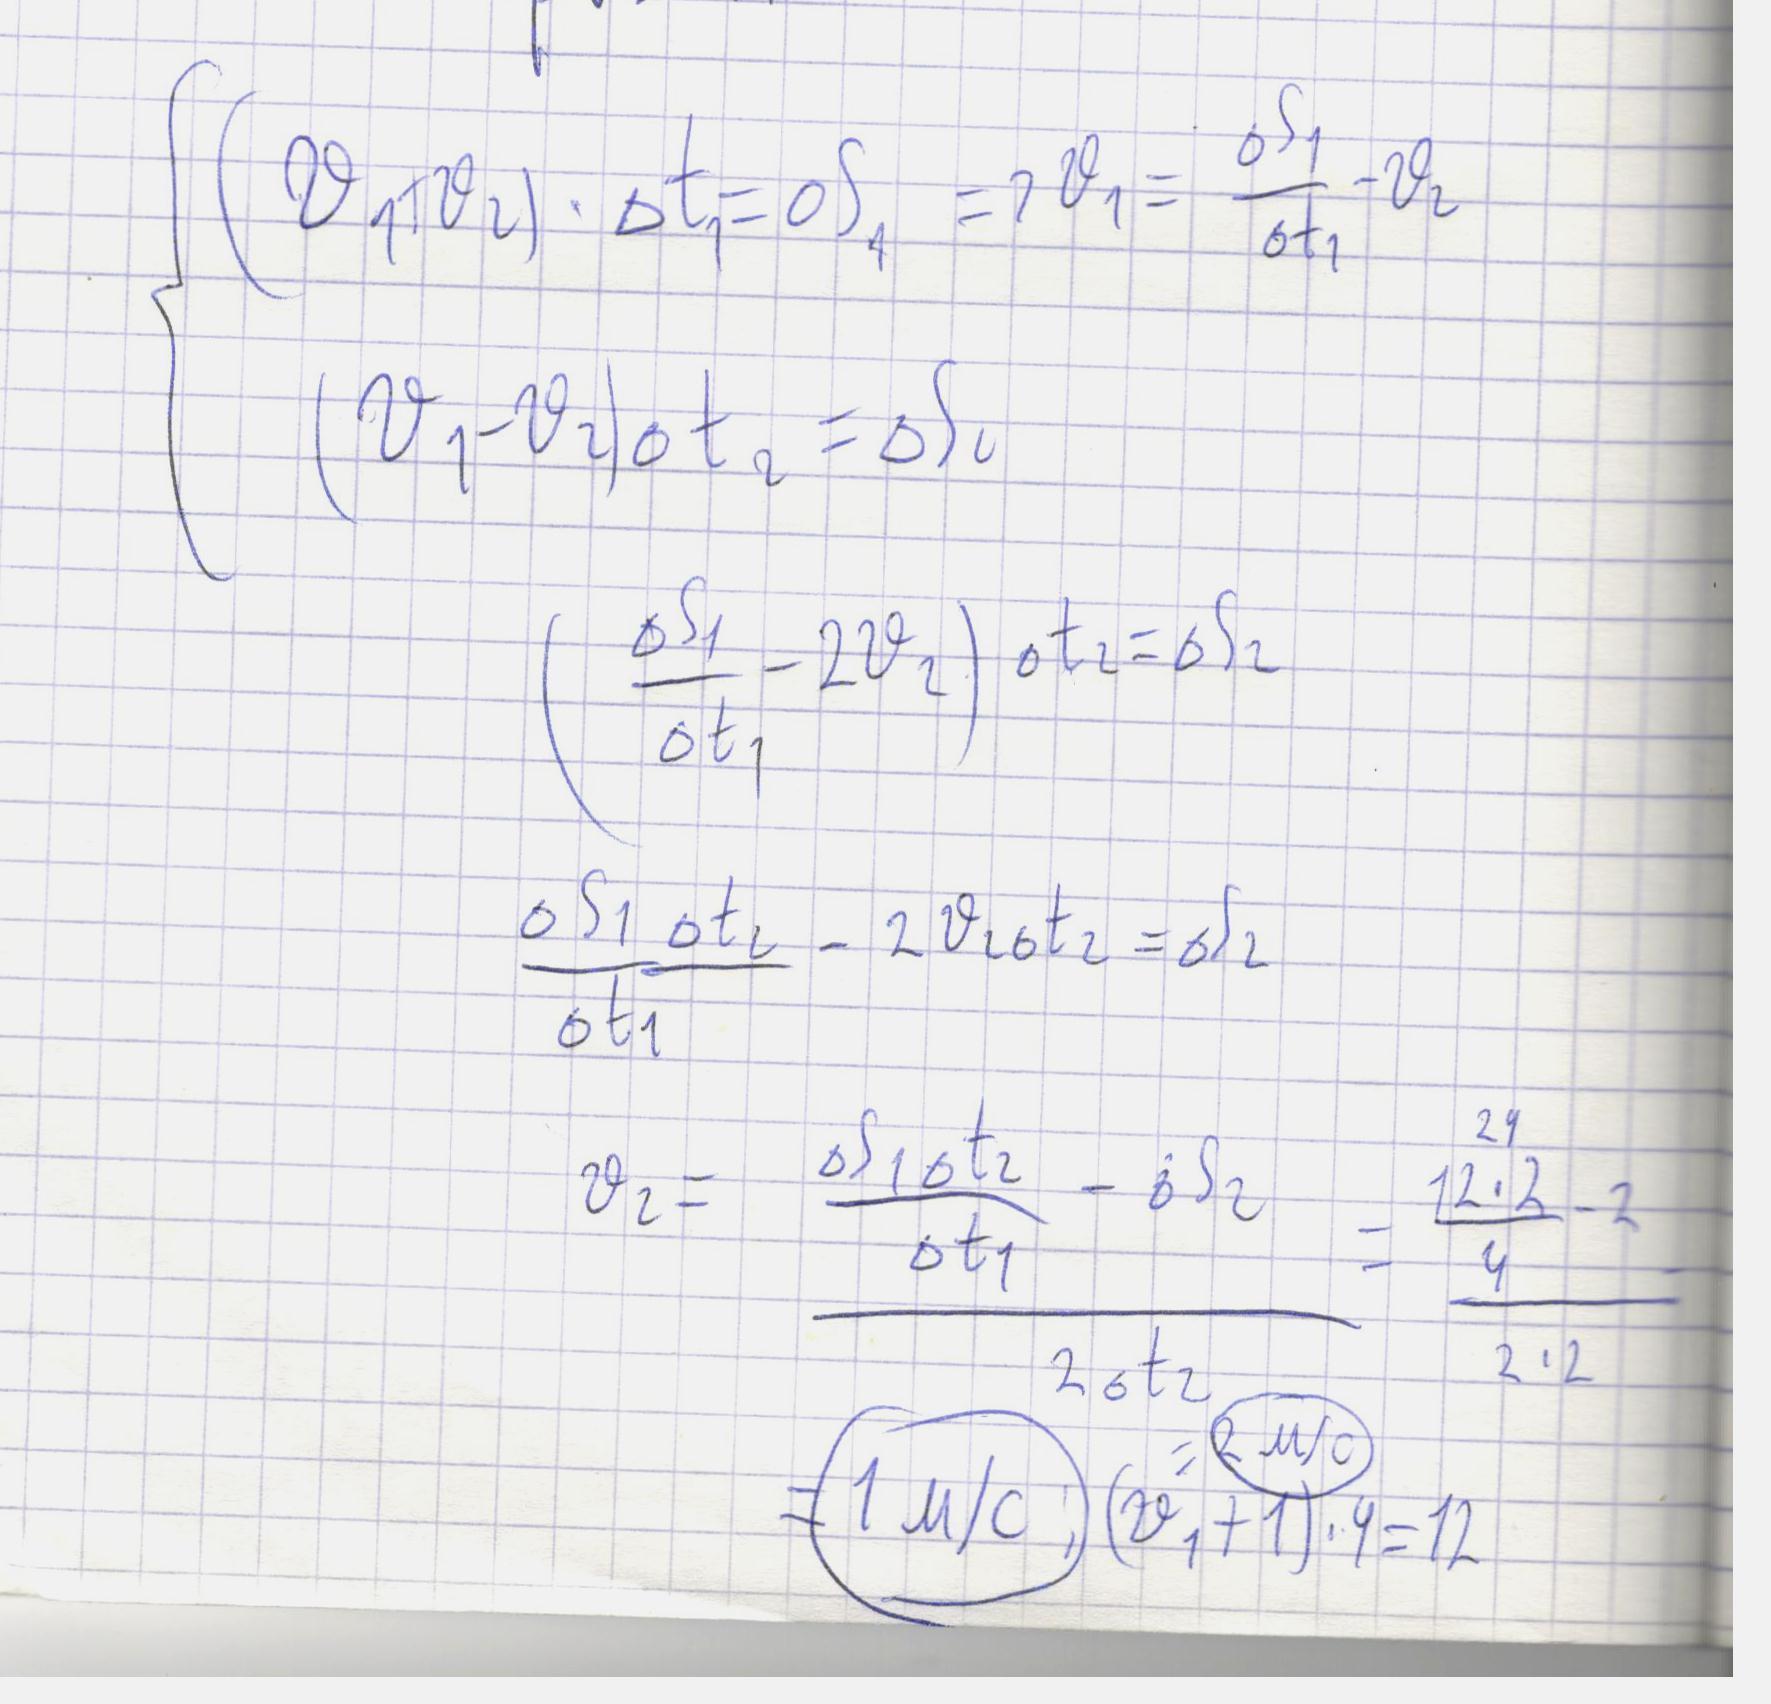 (υ₁+υ₂)·Δt₁=ΔS₁ => υ₁= ΔS₁/Δt₁ -υ₂
(υ₁-υ₂)Δt₂=ΔS₂
(ΔS₁/Δt₁ -2υ₂)Δt₂=ΔS₂
ΔS₁Δt₂/Δt₁ - 2υ₂Δt₂=ΔS₂
υ₂= (ΔS₁Δt₂/Δt₁ - ΔS₂)/(2Δt₂) = (12·2/4 -2)/(2·2)
24
= 2 м/с
= 1 м/с; (υ₁+1)·4=12